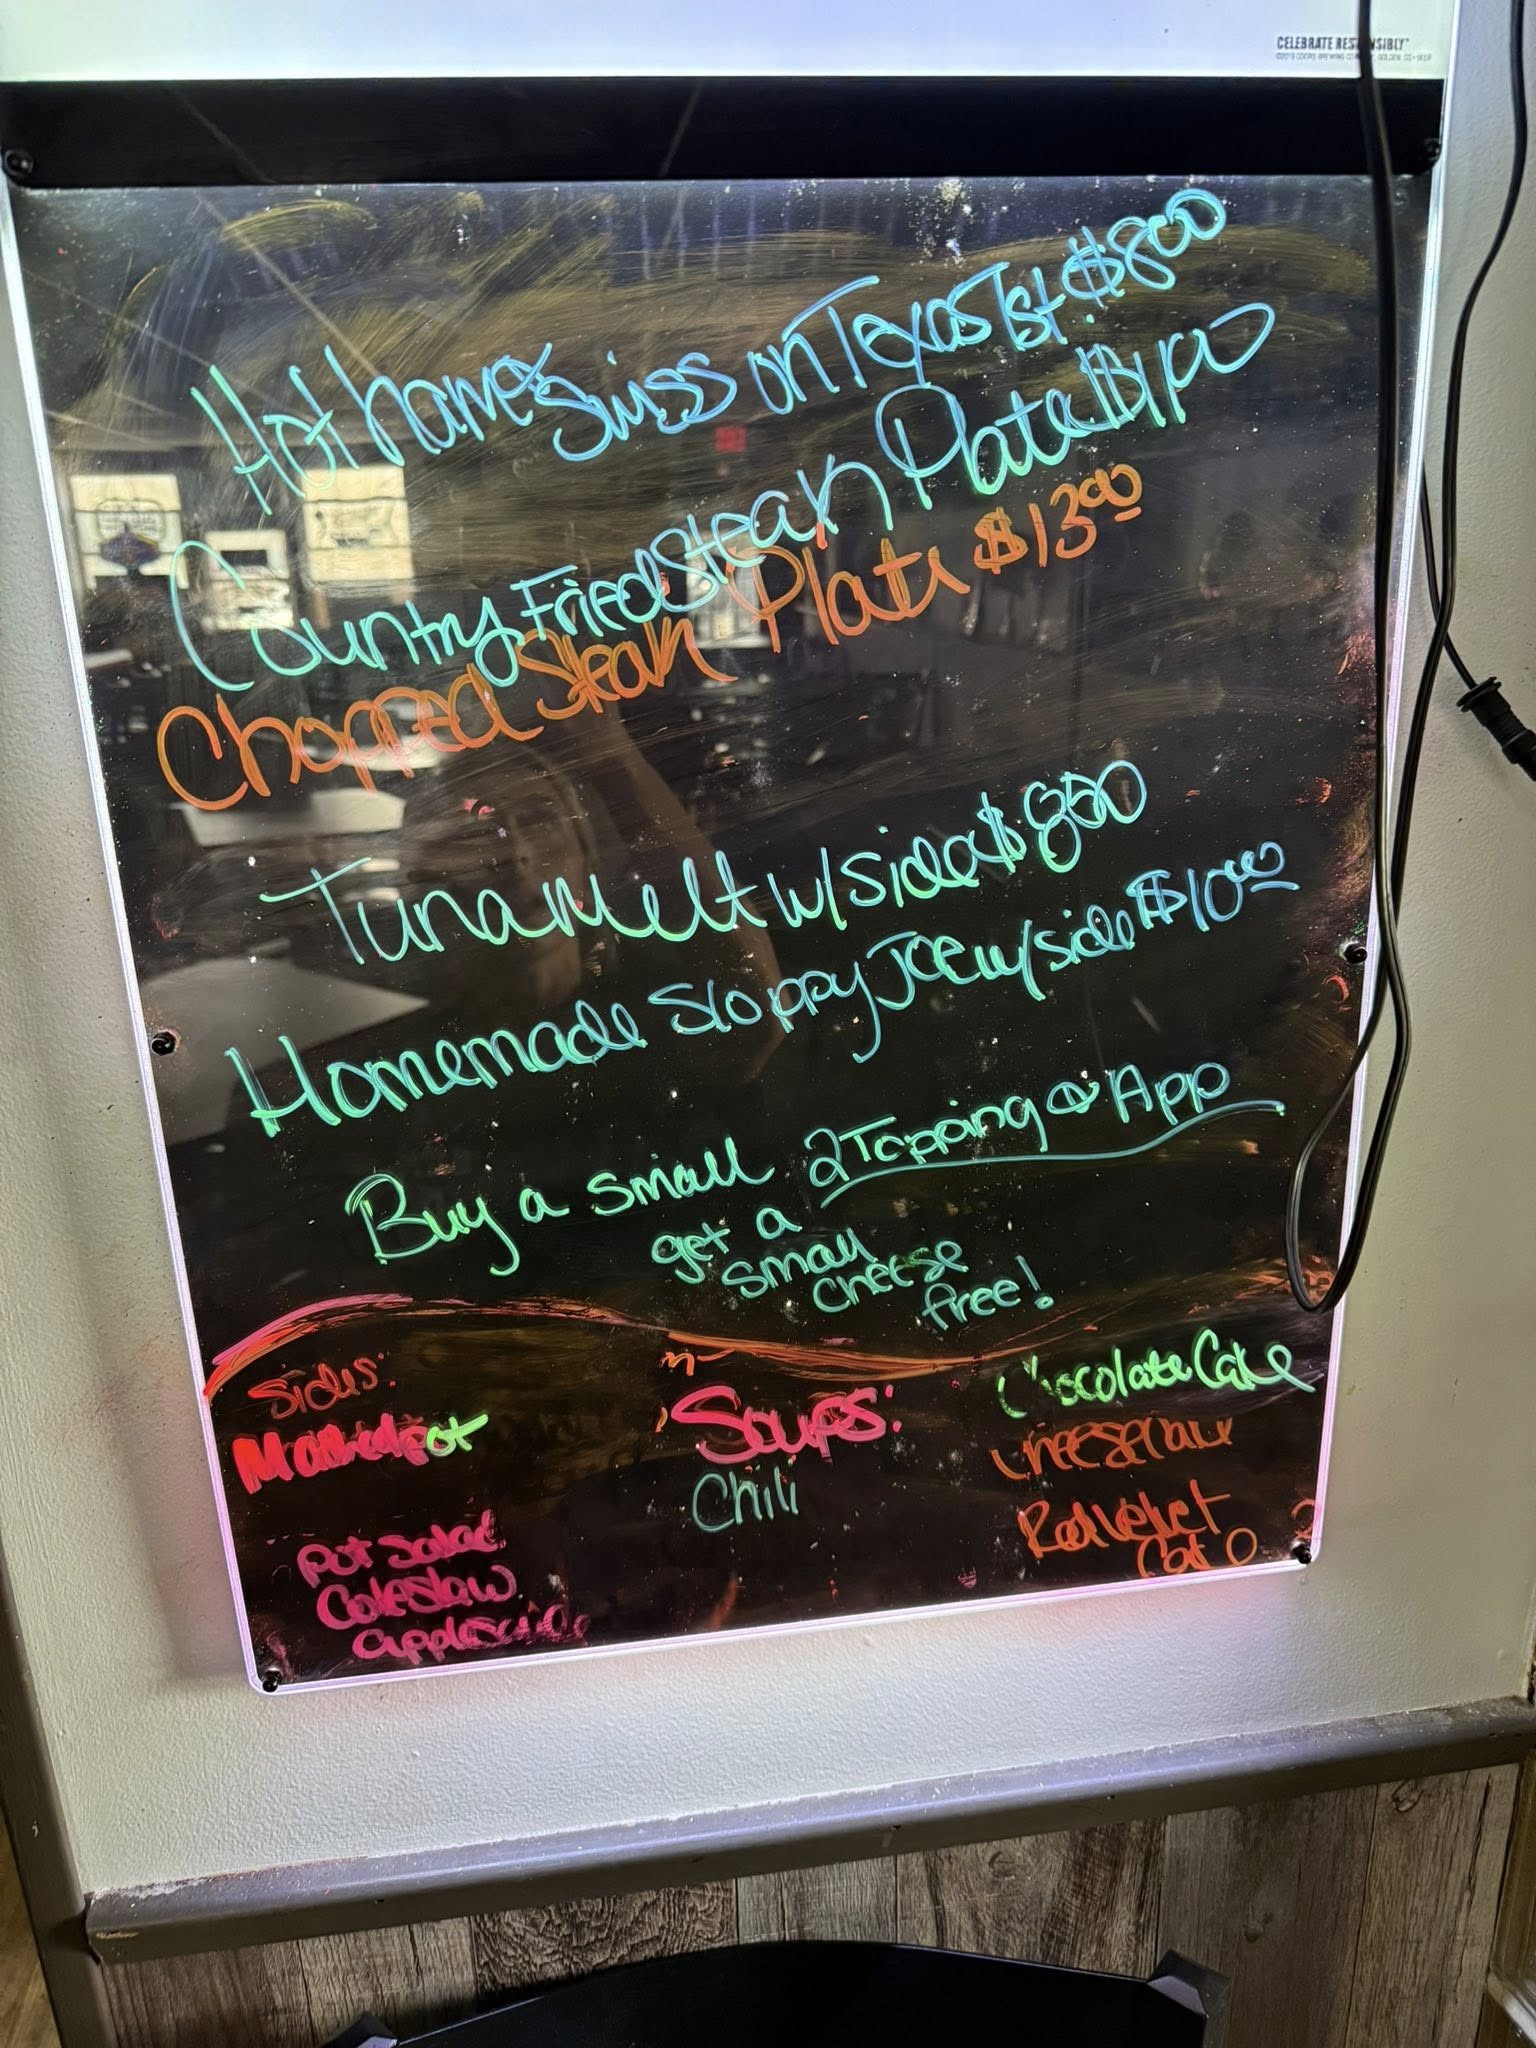 CELEBRATE RESPONSIBLY™
Hot ham & Swiss on Texas Tst $8.00
Country Fried Steak Plate
Chopped Steak Plate $13.00
Tuna Melt w/side $8.50
Homemade Sloppy Joe w/side $10.00
Buy a small 2 Topping or App
get a
small
cheese
free!
Sides:
Mashed pot
Pot Salad
Coleslaw
applesauce
Soups:
Chili
Chocolate Cake
Cheesecake
Red Velvet
Cake